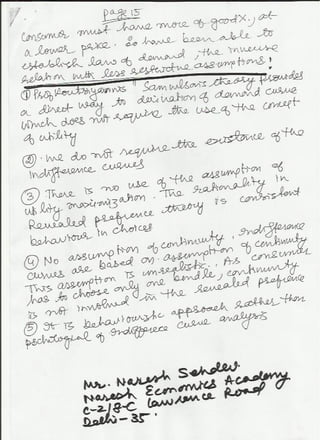 page 15
Consumer must have more of good X, at
a lower price. So have been able to
establish law of demand, the inverse
relation with less restrictive assumptions!
① Prof Koutsoyiannis Samulson's theory provides
a direct way to derivation of demand curve
which does not require the use of the concept
of utility
②. We do not require the existence of the
Indifference curves
③ There is no use of the assumption of
utility maximization. The rationality in
Revealed prefrence theory is consistent
behaviour in choices
④ No assumption of continuity. Indifference
curves are based on assumption of continuity
This assumption is unrealistic. As consumer
has to choose only one bundle, continuity
is not involved in the revealed prefrence
⑤ It is behaviouristic approach rather than
pschological of Indiffrece curve analysis
Mr. Naresh Sehdev
Naresh Economics Academy
C-2/8-C Lawrence Road
Delhi-35.